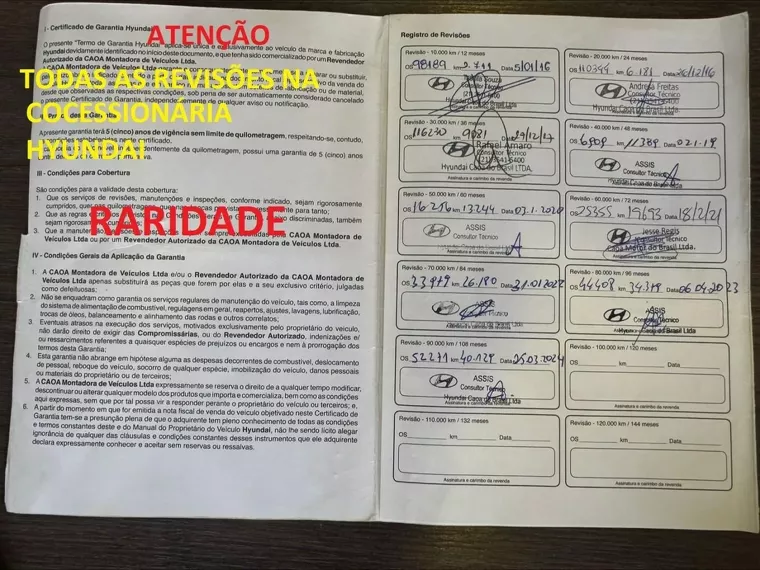 ATENÇÃO
TODAS AS REVISÕES NA
COCESSIONARIA
HYUNDAI
RARIDADE
I - Certificado de Garantia Hyundai
O presente "Termo de Garantia Hyundai" aplica-se única e exclusivamente ao veículo da marca e fabricação
Hyundai devidamente identificado no início deste documento, e que tenha sido comercializado por um Revendedor
Autorizado da CAOA Montadora de Veículos Ltda.
desde que observadas as respectivas condições, sob pena de ser automaticamente considerado cancelado
Certificado de Garantia, independentemente de qualquer aviso ou notificação.
A presente garantia terá 5 (cinco) anos de vigência sem limite de quilometragem, respeitando-se, contudo,
da quilometragem, possui uma garantia de 5 (cinco) anos
III - Condições para Cobertura
São condições para a validade desta cobertura:
1. Que os serviços de revisões, manutenções e inspeções, conforme indicado, sejam rigorosamente
também
sejam rigorosamente
3. Que a CAOA Montadora de
Veículos Ltda ou por um Revendedor Autorizado da CAOA Montadora de Veículos Ltda.
IV - Condições Gerais da Aplicação da Garantia
1. A CAOA Montadora de Veículos Ltda e/ou o Revendedor Autorizado da CAOA Montadora de
Veículos Ltda apenas substituirá as peças que forem por elas e a seu exclusivo critério, julgadas
como defeituosas;
2. Não se enquadram como garantia os serviços regulares de manutenção do veículo, tais como, a limpeza
do sistema de alimentação de combustível, regulagens em geral, reapertos, ajustes, lavagens, lubrificação,
trocas de óleos, balanceamento e alinhamento das rodas e outros correlatos;
3. Eventuais atrasos na execução dos serviços, motivados exclusivamente pelo proprietário do veículo,
não darão direito de exigir das Compromissárias, ou do Revendedor Autorizado, indenizações e/
ou ressarcimentos referentes a quaisquer espécies de prejuízos ou encargos e nem à prorrogação dos
termos desta Garantia;
4. Esta garantia não abrange em hipótese alguma as despesas decorrentes de combustível, deslocamento
de pessoal, reboque do veículo, socorro de qualquer espécie, imobilização do veículo, danos pessoais
ou materiais do proprietário ou de terceiros;
5. A CAOA Montadora de Veículos Ltda expressamente se reserva o direito de a qualquer tempo modificar,
descontinuar ou alterar qualquer modelo dos produtos que importa e comercializa, bem como as condições
aqui expressas, sem que por tal possa vir a responder perante o proprietário do veículo ou terceiros; e,
6. A partir do momento em que for emitida a nota fiscal de venda do veículo objetivado neste Certificado de
Garantia tem-se a presunção plena de que o adquirente tem pleno conhecimento de todas as condições
e termos constantes deste e do Manual do Proprietário do Veículo Hyundai, não lhe sendo lícito alegar
ignorância de qualquer das cláusulas e condições constantes desses instrumentos que ele adquirente
declara expressamente conhecer e aceitar sem reservas ou ressalvas.
Registro de Revisões
Revisão - 10.000 km / 12 meses
OS 98189 km 2.711 Data 5/01/16
Souza
Consultor Técnico
Revisão - 20.000 km / 24 meses
OS 110344 km 6.181 Data 26/12/16
Andresa Freitas
Consultor Técnico
Hyundai Caoa do Brasil Ltda
Revisão - 30.000 km / 36 meses
OS 116230 km 9081 Data 29/12/17
Rafael Amaro
Consultor Técnico
Hyundai Caoa do Brasil LTDA.
Revisão - 40.000 km / 48 meses
OS 6909 km 11389 Data 02.1.19
ASSIS
Consultor Técnico
Revisão - 50.000 km / 60 meses
OS 16216 km 13244 Data 03.1.2020
ASSIS
Consultor Técnico
Revisão - 60.000 km / 72 meses
OS 25355 km 19693 Data 18/2/21
Jesse Regis
Consultor Técnico
Caoa Motor do Brasil Ltda.
Revisão - 70.000 km / 84 meses
OS 33979 km 26.180 Data 21.01.2022
Revisão - 80.000 km / 96 meses
OS 44408 km 34.318 Data 06.04.2023
ASSIS
Revisão - 90.000 km / 108 meses
OS 52271 km 40.129 Data 25.03.2024
ASSIS
Consultor Técnico
Hyundai Caoa do Brasil Ltda
Assinatura e carimbo da revenda
Revisão - 100.000 km / 120 meses
OS km Data
Assinatura e carimbo da revenda
Revisão - 110.000 km / 132 meses
OS km Data
Assinatura e carimbo da revenda
Revisão - 120.000 km / 144 meses
OS km Data
Assinatura e carimbo da revenda